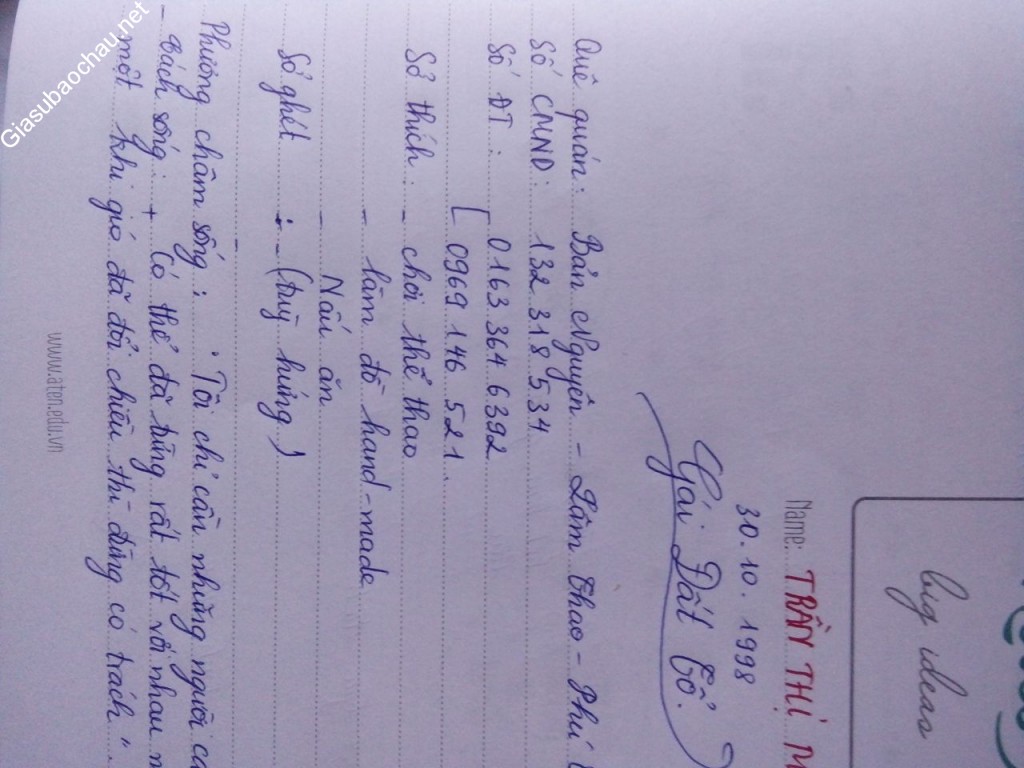 big ideas
Name: TRẦN THỊ M
30.10.1998
Gái Đất Tổ.
Quê quán: Bản Nguyên - Lâm Thao - Phú
Số CMND: 132 318 534
Số ĐT: 0163 364 6392
[ 0969 146 521.
Sở thích: - chơi thể thao
- làm đồ hand-made
- Nấu ăn
Sở ghét : - (tuỳ hứng)
-
Phương châm sống: " Tôi chỉ cần những người có
- Cách sống: + Có thể đã từng rất tốt với nhau n
một khi gió đã đổi chiều thì đừng có trách "
www.aten.edu.vn
Giasubaochau.net